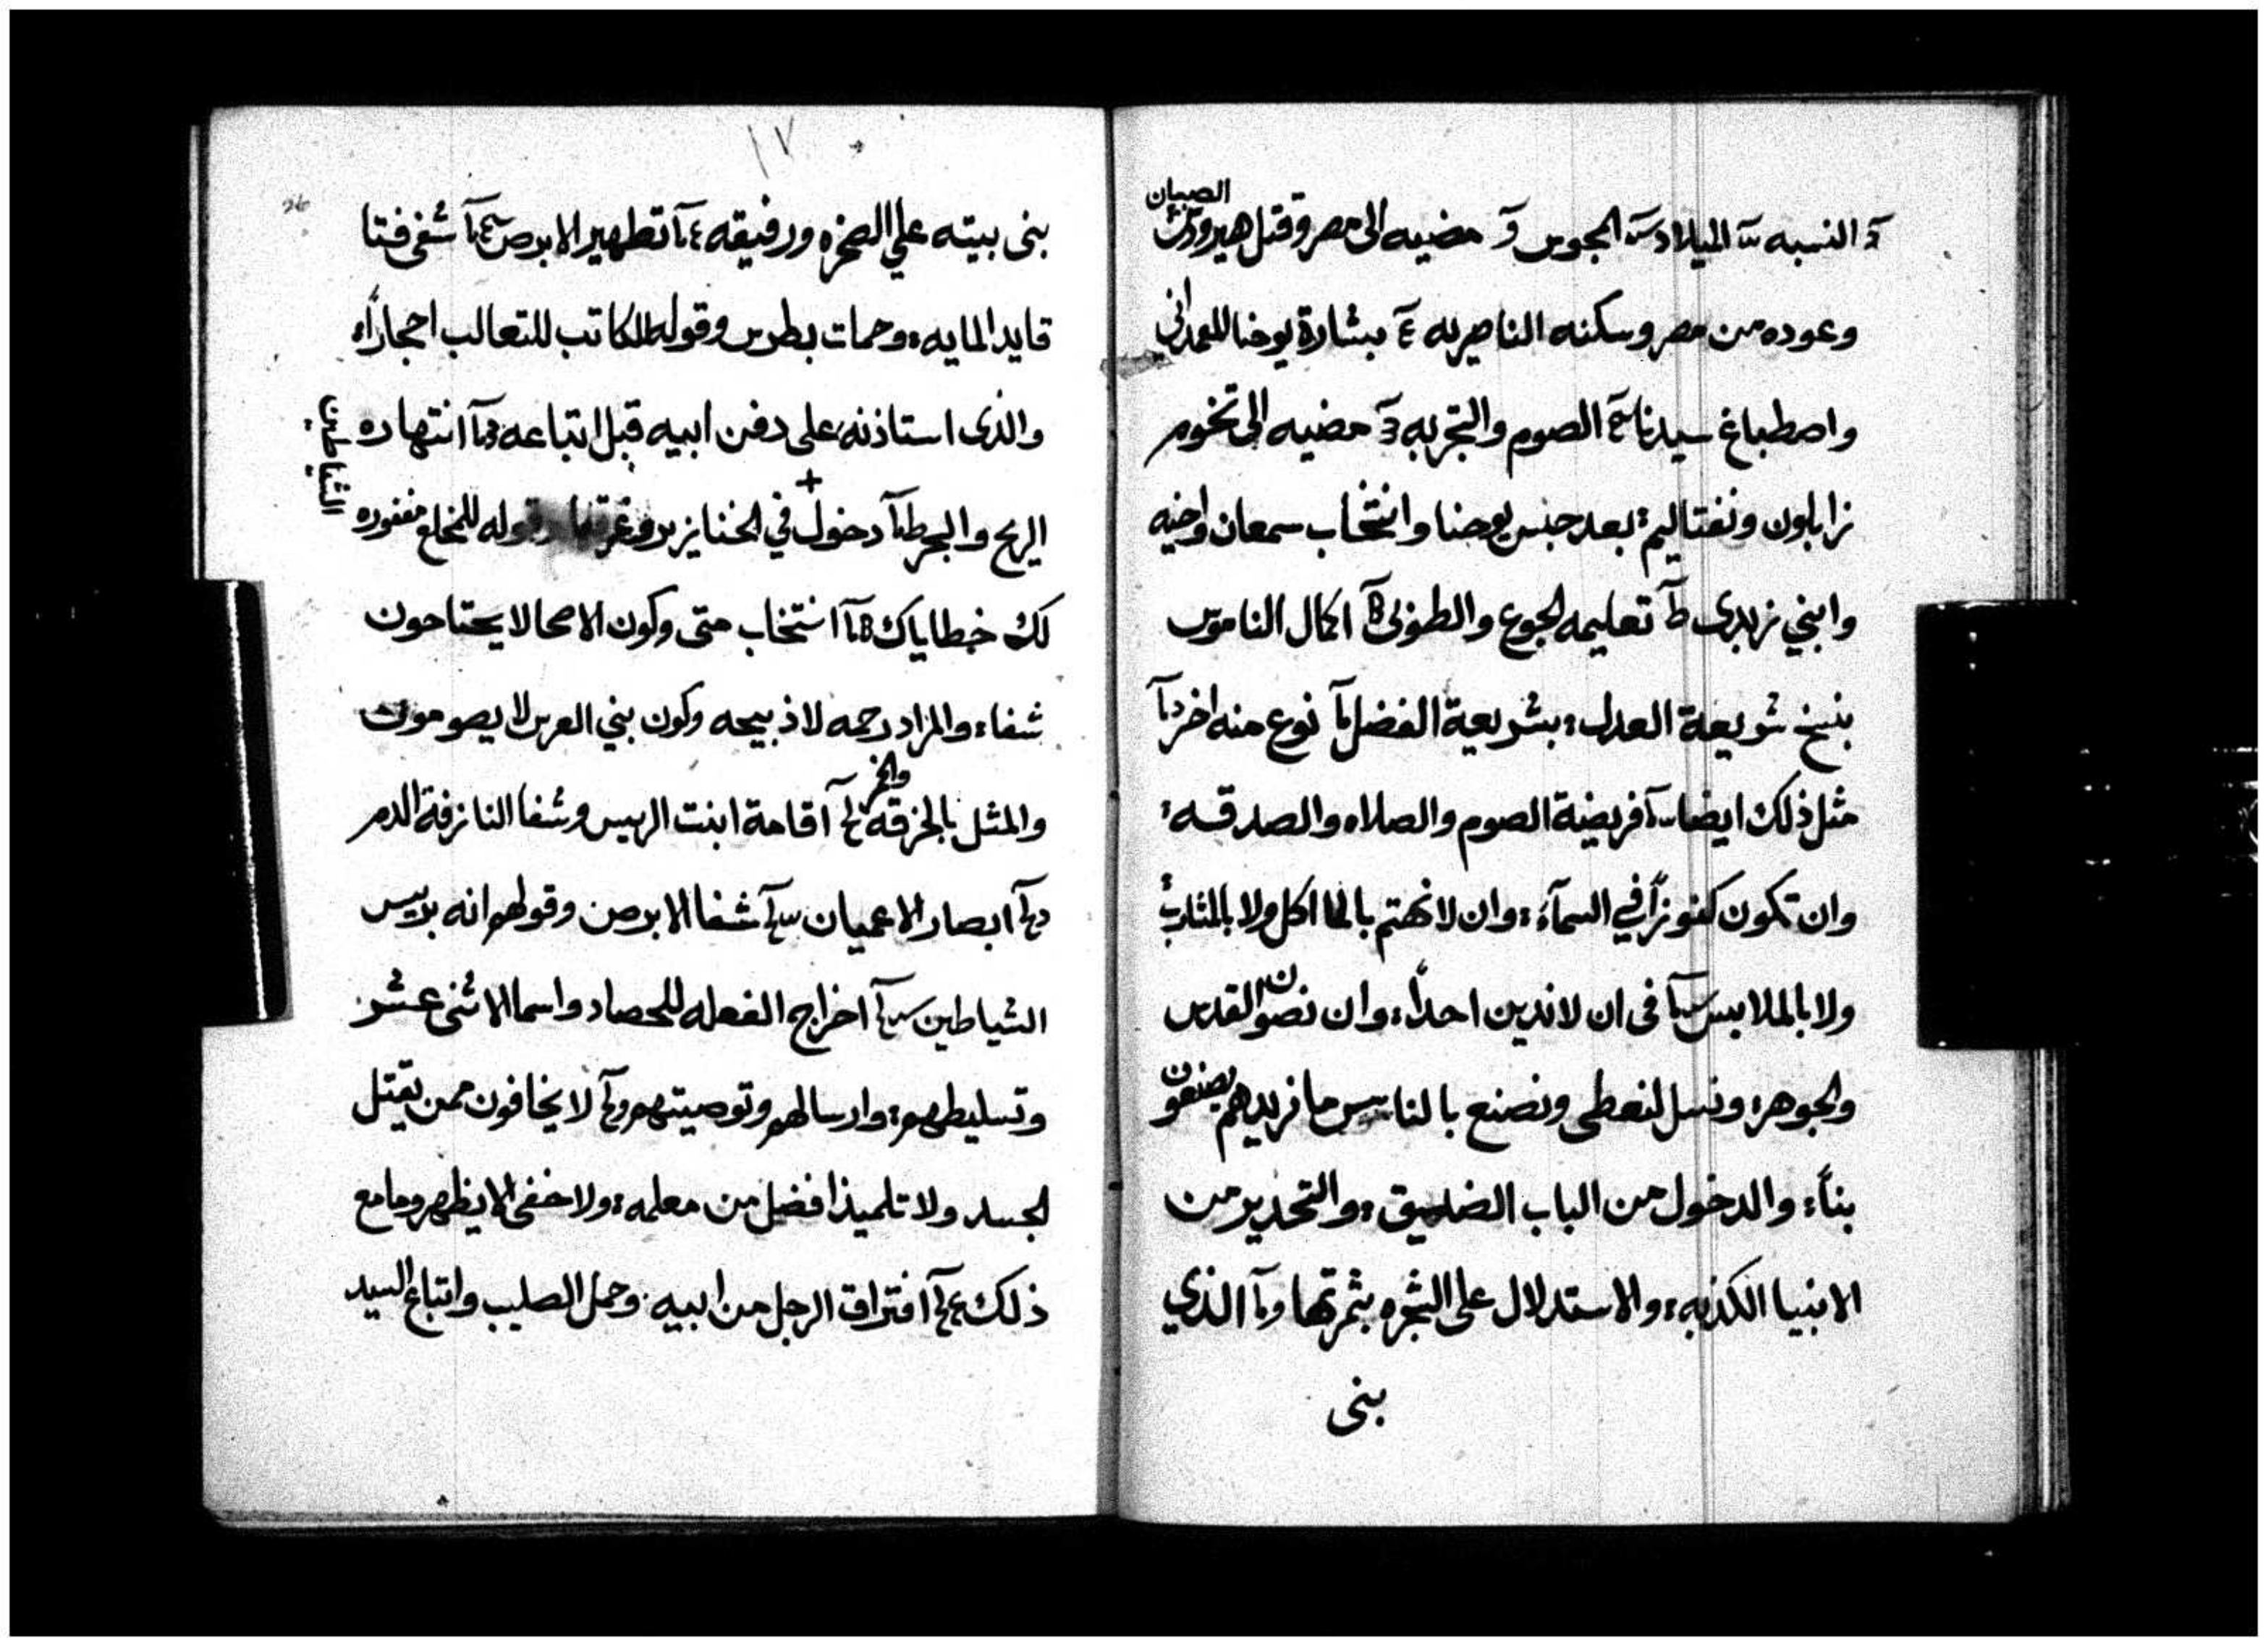 النسبه الميلاد المجوس مضيه الى مصر وقتل هيرودس الصبيان
وعوده من مصر وسكنه الناصريه بشارة يوحنا المعمداني
واصطباغ سيدنا الصوم والتجربه مضيه الى تخوم
زابلون ونفتاليم بعد حبس يوحنا وانتخاب سمعان واخيه
وابني زبدى تعليمه الجوع والطوبى اكمال الناموس
بنسخ شريعة العدل بشريعة الفضل نوع منه اخر
مثل ذلك ايضا فريضة الصوم والصلاه والصدقه
وان تكون كنوزاً في السمآء وان لا نهتم بالماكل ولا بالمشارب
ولا بالملابس فى ان لا ندين احداً وان نصون القدس
والجوهر ونسل لنعطى ونصنع بالناس ما نريدهم يصنعون
بناً والدخول من الباب الضيق والتحدير من
الانبيا الكذبه والاستدلال على الشجره بثمرتها الذي
بنى
١٧
26
بنى بيته علي الصخره ورفيقه تطهير الابرص شفى فتا
قايد المايه وحمات بطرس وقوله للكاتب للتعالب احجاراً
والذى استاذنه على دفن ابيه قبل اتباعه انتهاره
الريح والبحر دخول + في الخنازير وقوله للمخلع مغفوره
الشياطين
لك خطاياك انتخاب متى وكون الاصحا لا يحتاحون
شفاء والمراد رحمه لا ذبيحه وكون بني العرس لا يصومون
والمثل بالخرقه والخمر اقامة ابنت الريس وشفا النازفة الدم
ابصار الاعميان شفا الابرص وقولهم انه بريس
الشياطين اخراج الفعله للحصاد واسما الاثنى عشر
وتسليطهم وارسالهم وتوصيتهم لا يخافون ممن يقتل
الجسد ولا تلميذ افضل من معلمه ولا خفى الا يظهر وما مع
ذلك افتراق الرجل من ابيه وحمل الصليب واتباع السيد